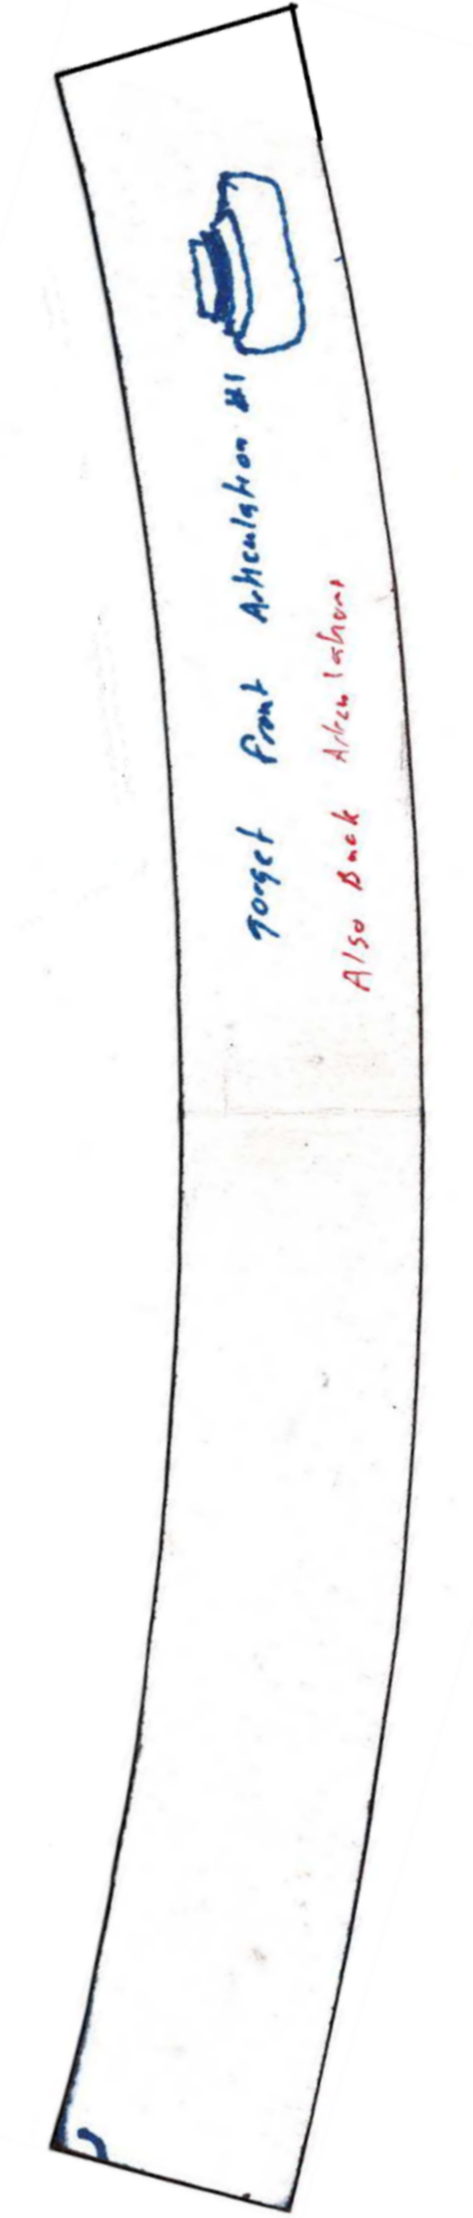 gorget front Articulation #1
Also Back Articulations